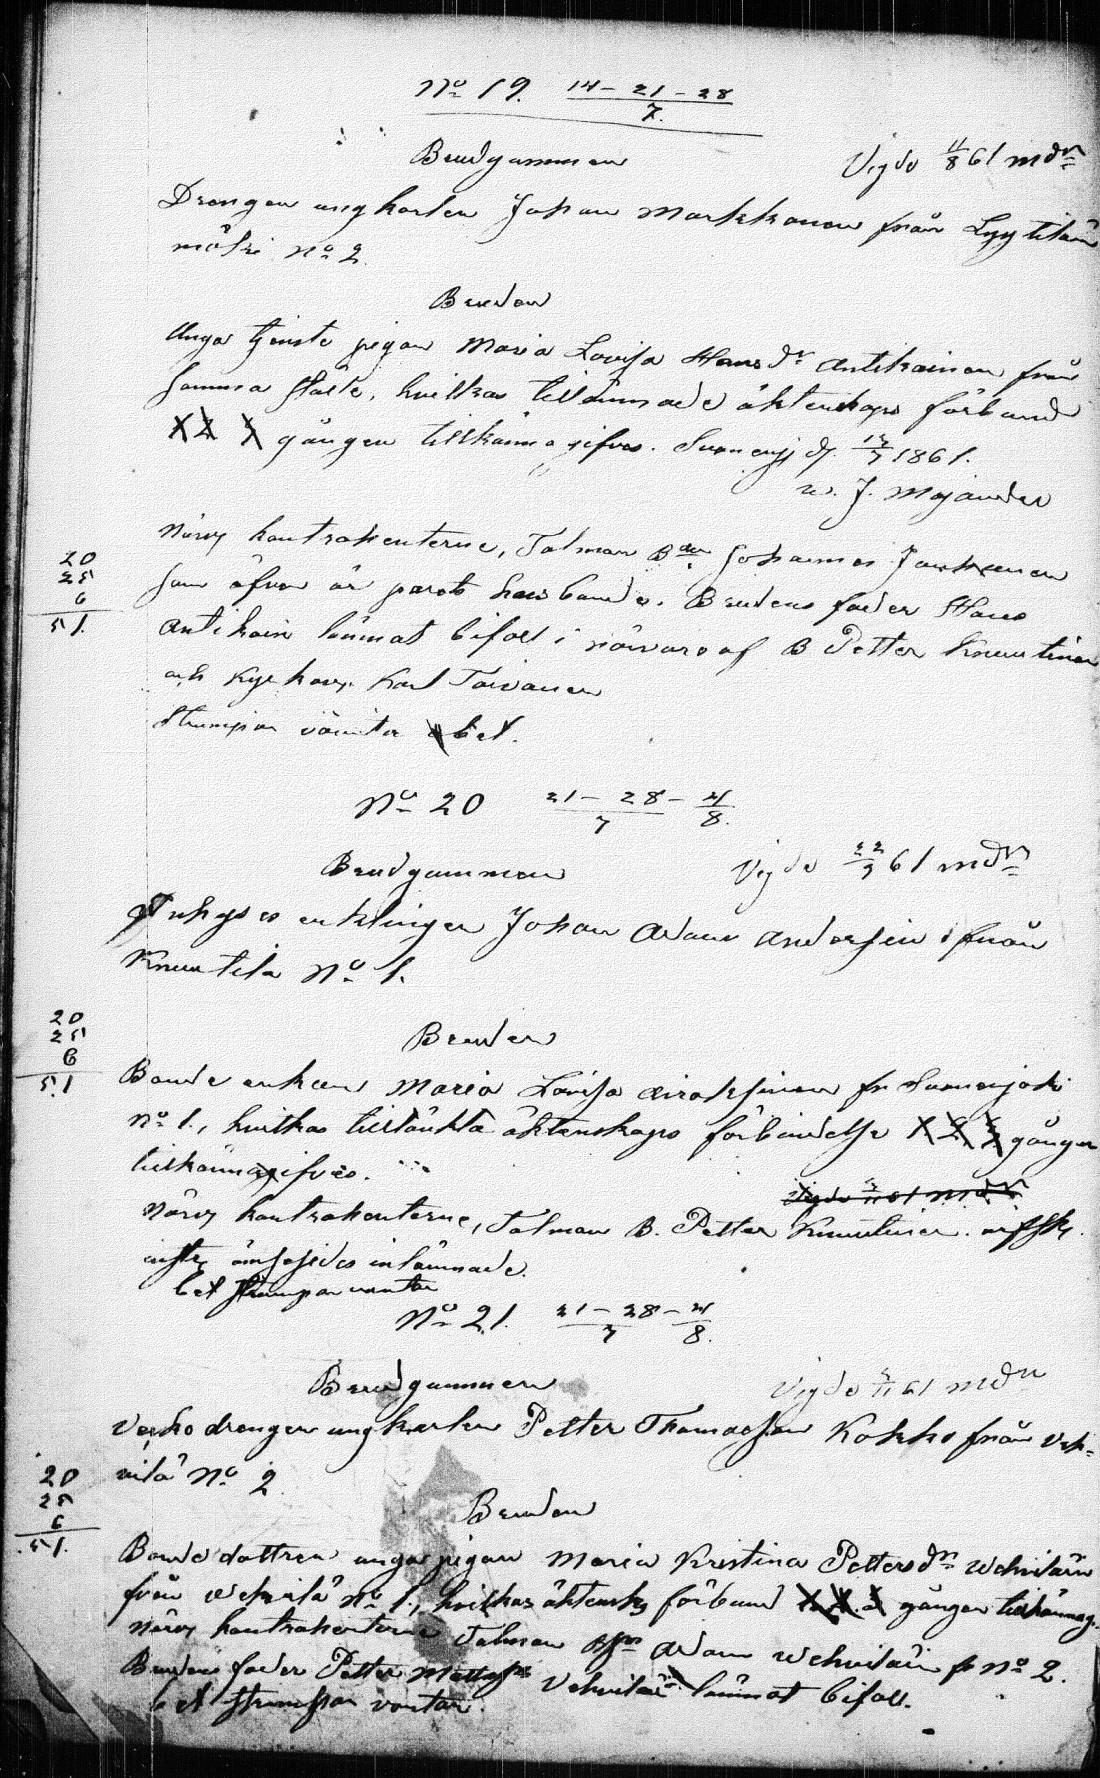 No 19. 14 – 21 – 28
7.
Brudgummen
Vigde 11/8 61 mdr
Drengen ungkarlen Johan Markkanen från Lyytilän
mäki No 2.
Bruden
Unga tjenste pigan Maria Lovisa Hansdr Antikainen från
samma ställe, hvilkas tillämnade äktenskaps förbund
X 2 X gången tillkännagifves. Suonenj. d. 13/7 1861.
W. J. Majander
Närv. kontrahenterne, Talman Bden Johannes
20
25
6
51.
som äfven är parets husbonde. Brudens fader Hans
Antikain lämnat bifall i närvaro af B Petter Knuutinen
och Karl Toivanen
Strumpor väntar bet.
No 20 21 – 28 – 4
7 8.
Brudgumman
Vigde 22/9 61 mdr
enklingen Johan Adam Andersin från
Knuutila No 1.
20
25
6
51
Bruden
Bonde enkan Maria Lovisa Airaksinen fr Suonenjoki
No 1., hvilkas tilltänkta äktenskaps förbindelse X 2 3 gången
tillkännagifves.
Närv kontrahenterne, Talman B. Petter Knuutinen.
ömsesides inlämnade.
bet strumpor vantar
No 21. 21 – 28 – 4
7 8.
Brudgummen
Vigde 61 mdr
drengen ungkarlen Petter Thomasson Kokko från Veh-
vilä No 2.
20
25
6
51.
Bruden
Bonde dottren unga pigan Maria Kristina Pettersdr Wehviläin
från Wehvilä No 1., hvilkas äktensk. förbund gången tillkännag.
Närv kontrahenterne Talman Adam Wehviläin fr No 2.
Brudens fader Petter Vehviläin lämnat bifall.
bet strumpor vantar.